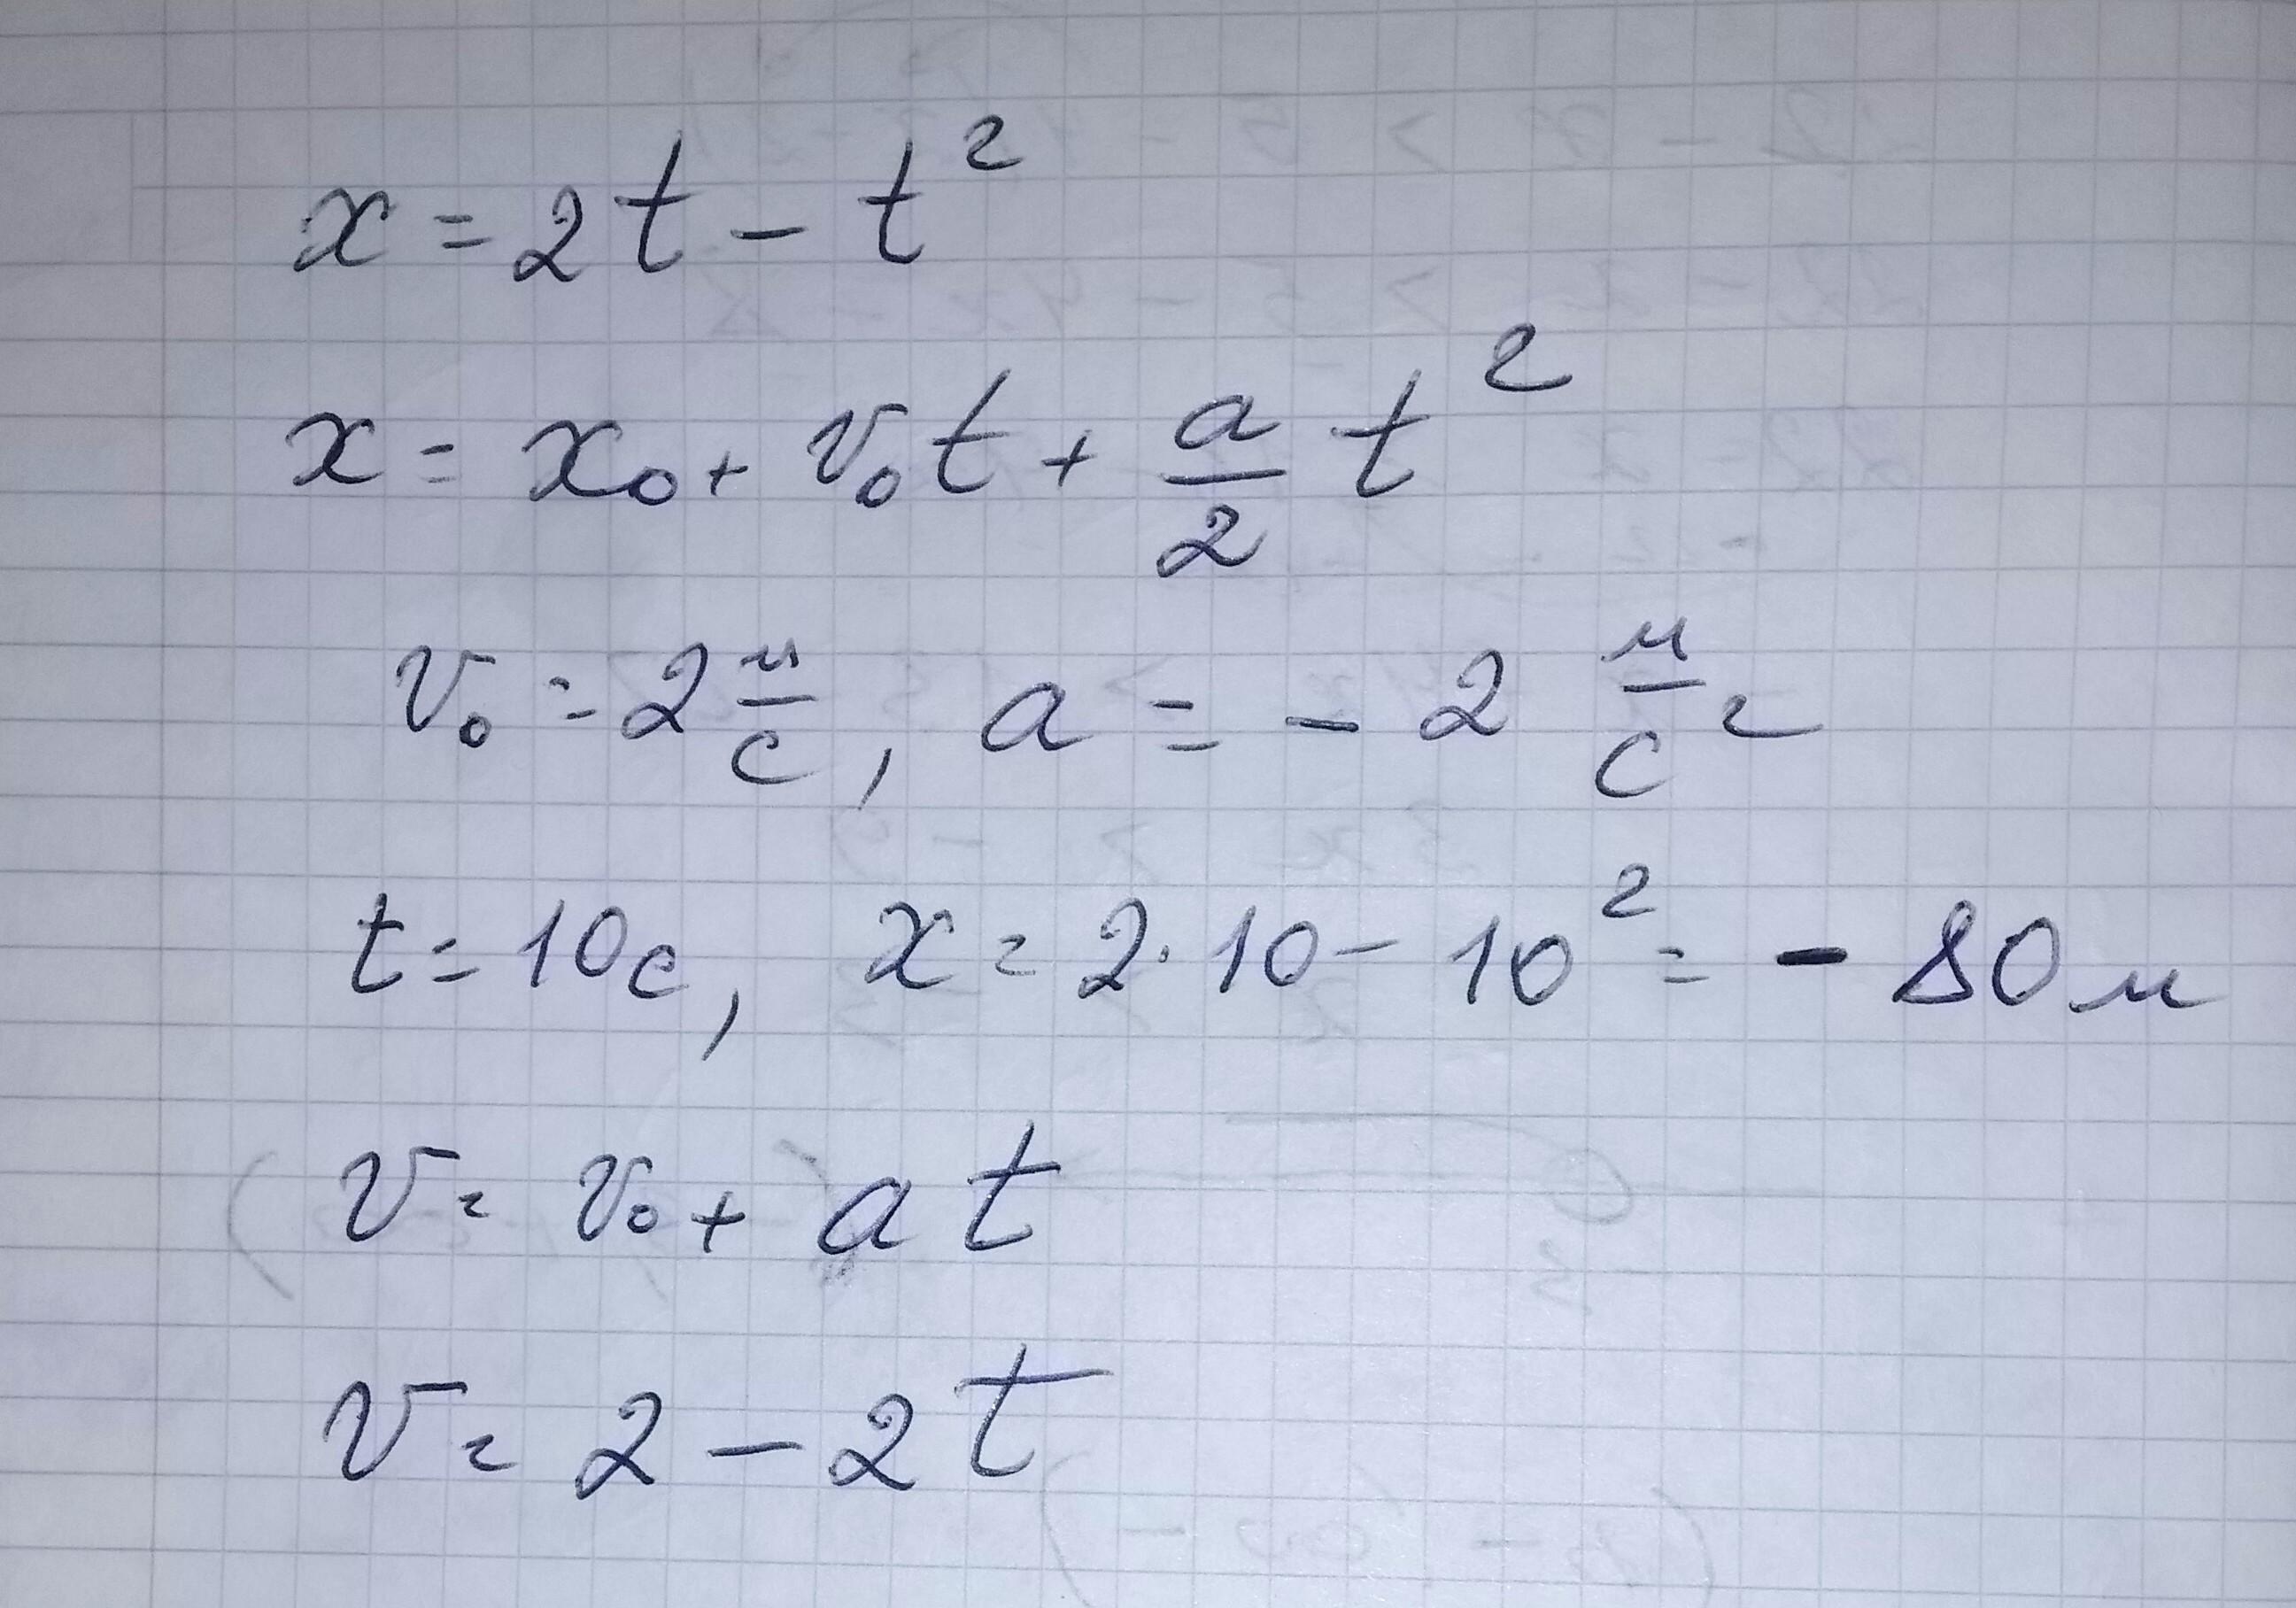 x = 2t - t²
x = x₀ + v₀t + a/2 t²
v₀ = 2 м/с, a = - 2 м/с²
t = 10с, x = 2·10 - 10² = - 80м
v = v₀ + at
v = 2 - 2t